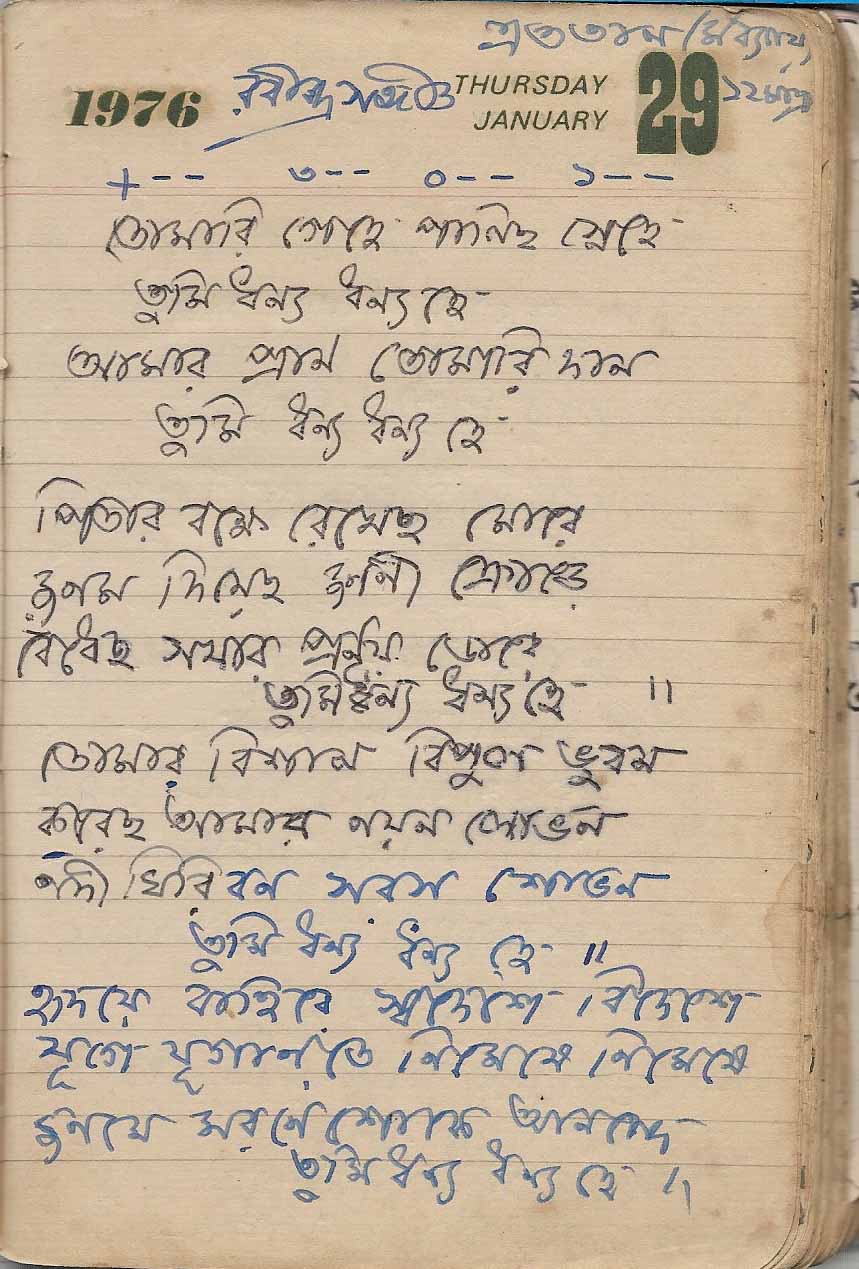 একতাল (মধ্যলয়)
1976 রবীন্দ্রসঙ্গীত THURSDAY 29 ১২মাত্রা
JANUARY
+-- ৩-- ০-- ১---
তোমারি গেহে পালিছ স্নেহে
তুমি ধন্য ধন্য হে
আমার প্রান তোমারি দান
তুমি ধন্য ধন্য হে
পিতার বক্ষে রেখেছ মোরে
জনম দিয়েছ জননী ক্রোড়ে
বেধেছ সখার প্রনয় ডোরে
তুমি ধন্য ধন্য হে ॥
তোমার বিশাল বিপুল ভুবন
করেছ আমার নয়ন লোভন
নদী গিরি বন সরস শোভন
তুমি ধন্য ধন্য হে ॥
হৃদয়ে বাহিরে স্বদেশে বিদেশে
যুগে যুগান্তে নিমেষে নিমেষে
জনমে মরনে শোকে আনন্দে
তুমি ধন্য ধন্য হে ॥